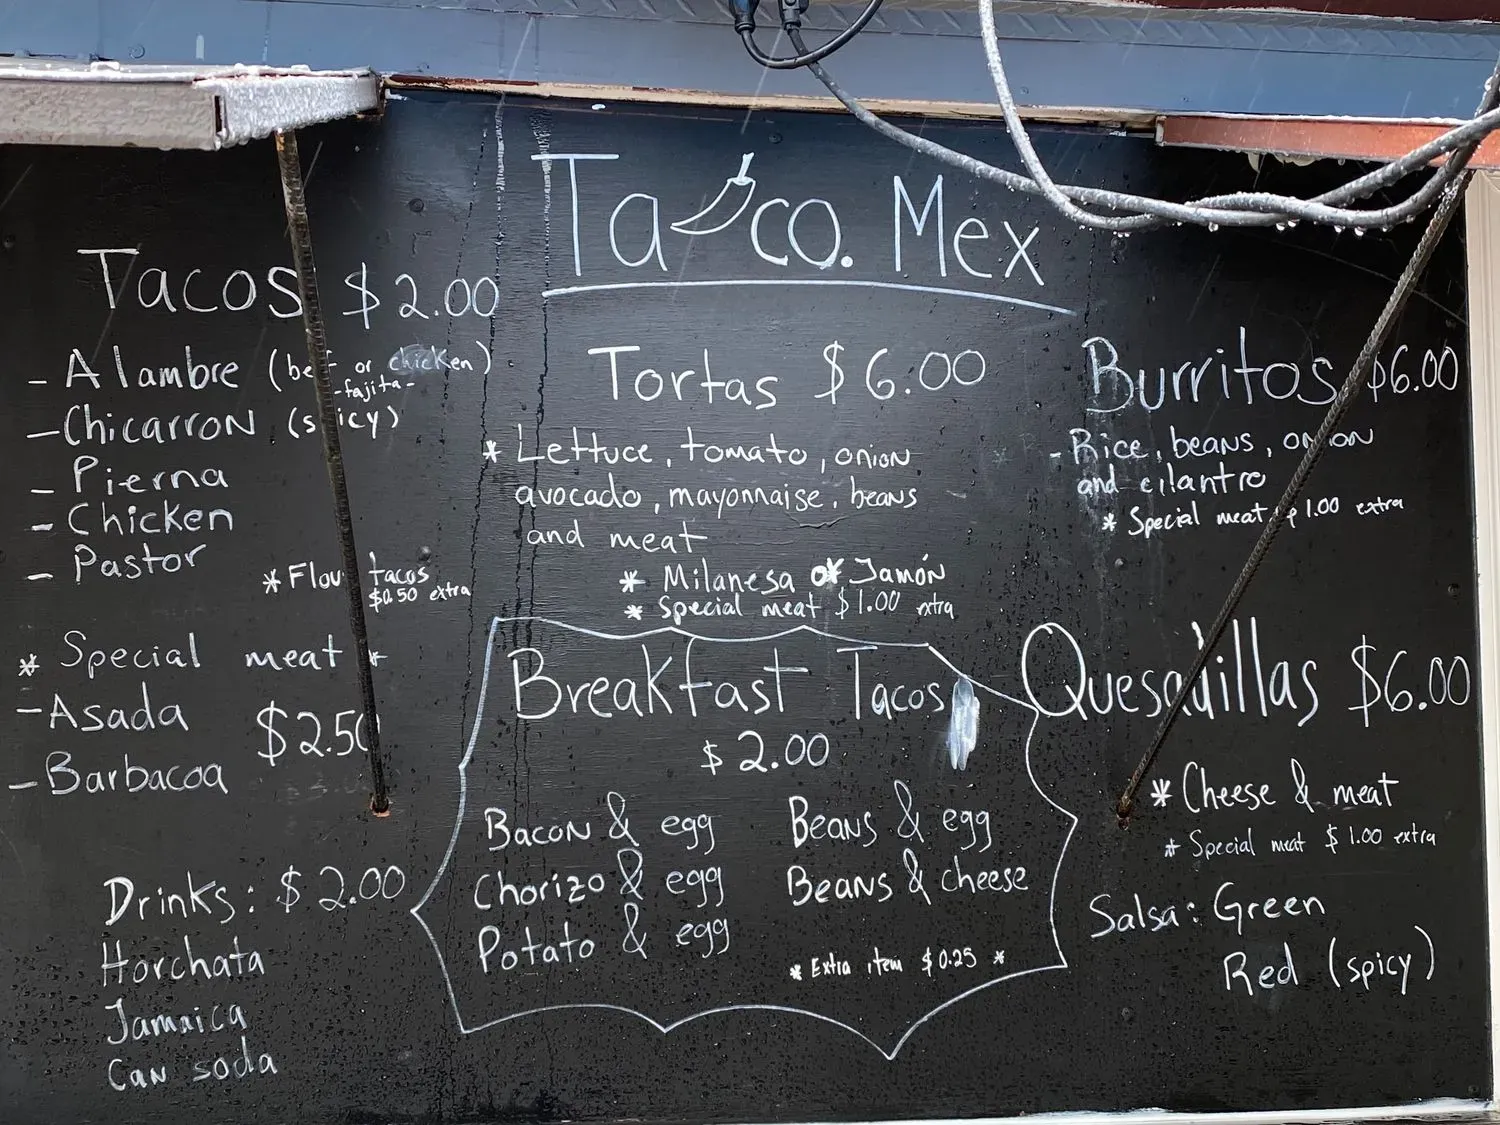 Taco. Mex
Tacos $2.00
- Alambre (beef or chicken)
-fajita-
- Chicarron (spicy)
- Pierna
- Chicken
- Pastor
* Flour tacos
$0.50 extra
* Special meat *
- Asada
$2.50
- Barbacoa
Drinks: $2.00
Horchata
Jamaica
Can soda
Tortas $6.00
* Lettuce, tomato, onion
avocado, mayonnaise, beans
and meat
* Milanesa or Jamón
* Special meat $1.00 extra
Breakfast Tacos
$2.00
Bacon & egg
Chorizo & egg
Potato & egg
Beans & egg
Beans & cheese
* Extra item $0.25 *
Burritos $6.00
- Rice, beans, onion
and cilantro
* Special meat $1.00 extra
Quesadillas $6.00
* Cheese & meat
* Special meat $1.00 extra
Salsa: Green
Red (spicy)